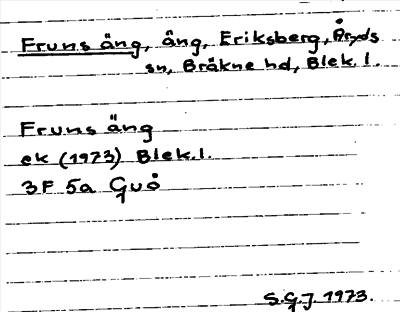 Fruns äng, äng, Eriksberg, Åryds
sn, Bräkne hd, Blek. l.
Fruns äng
ek (1973) Blek. l.
3F 5a Guö
S.G.J. 1973.